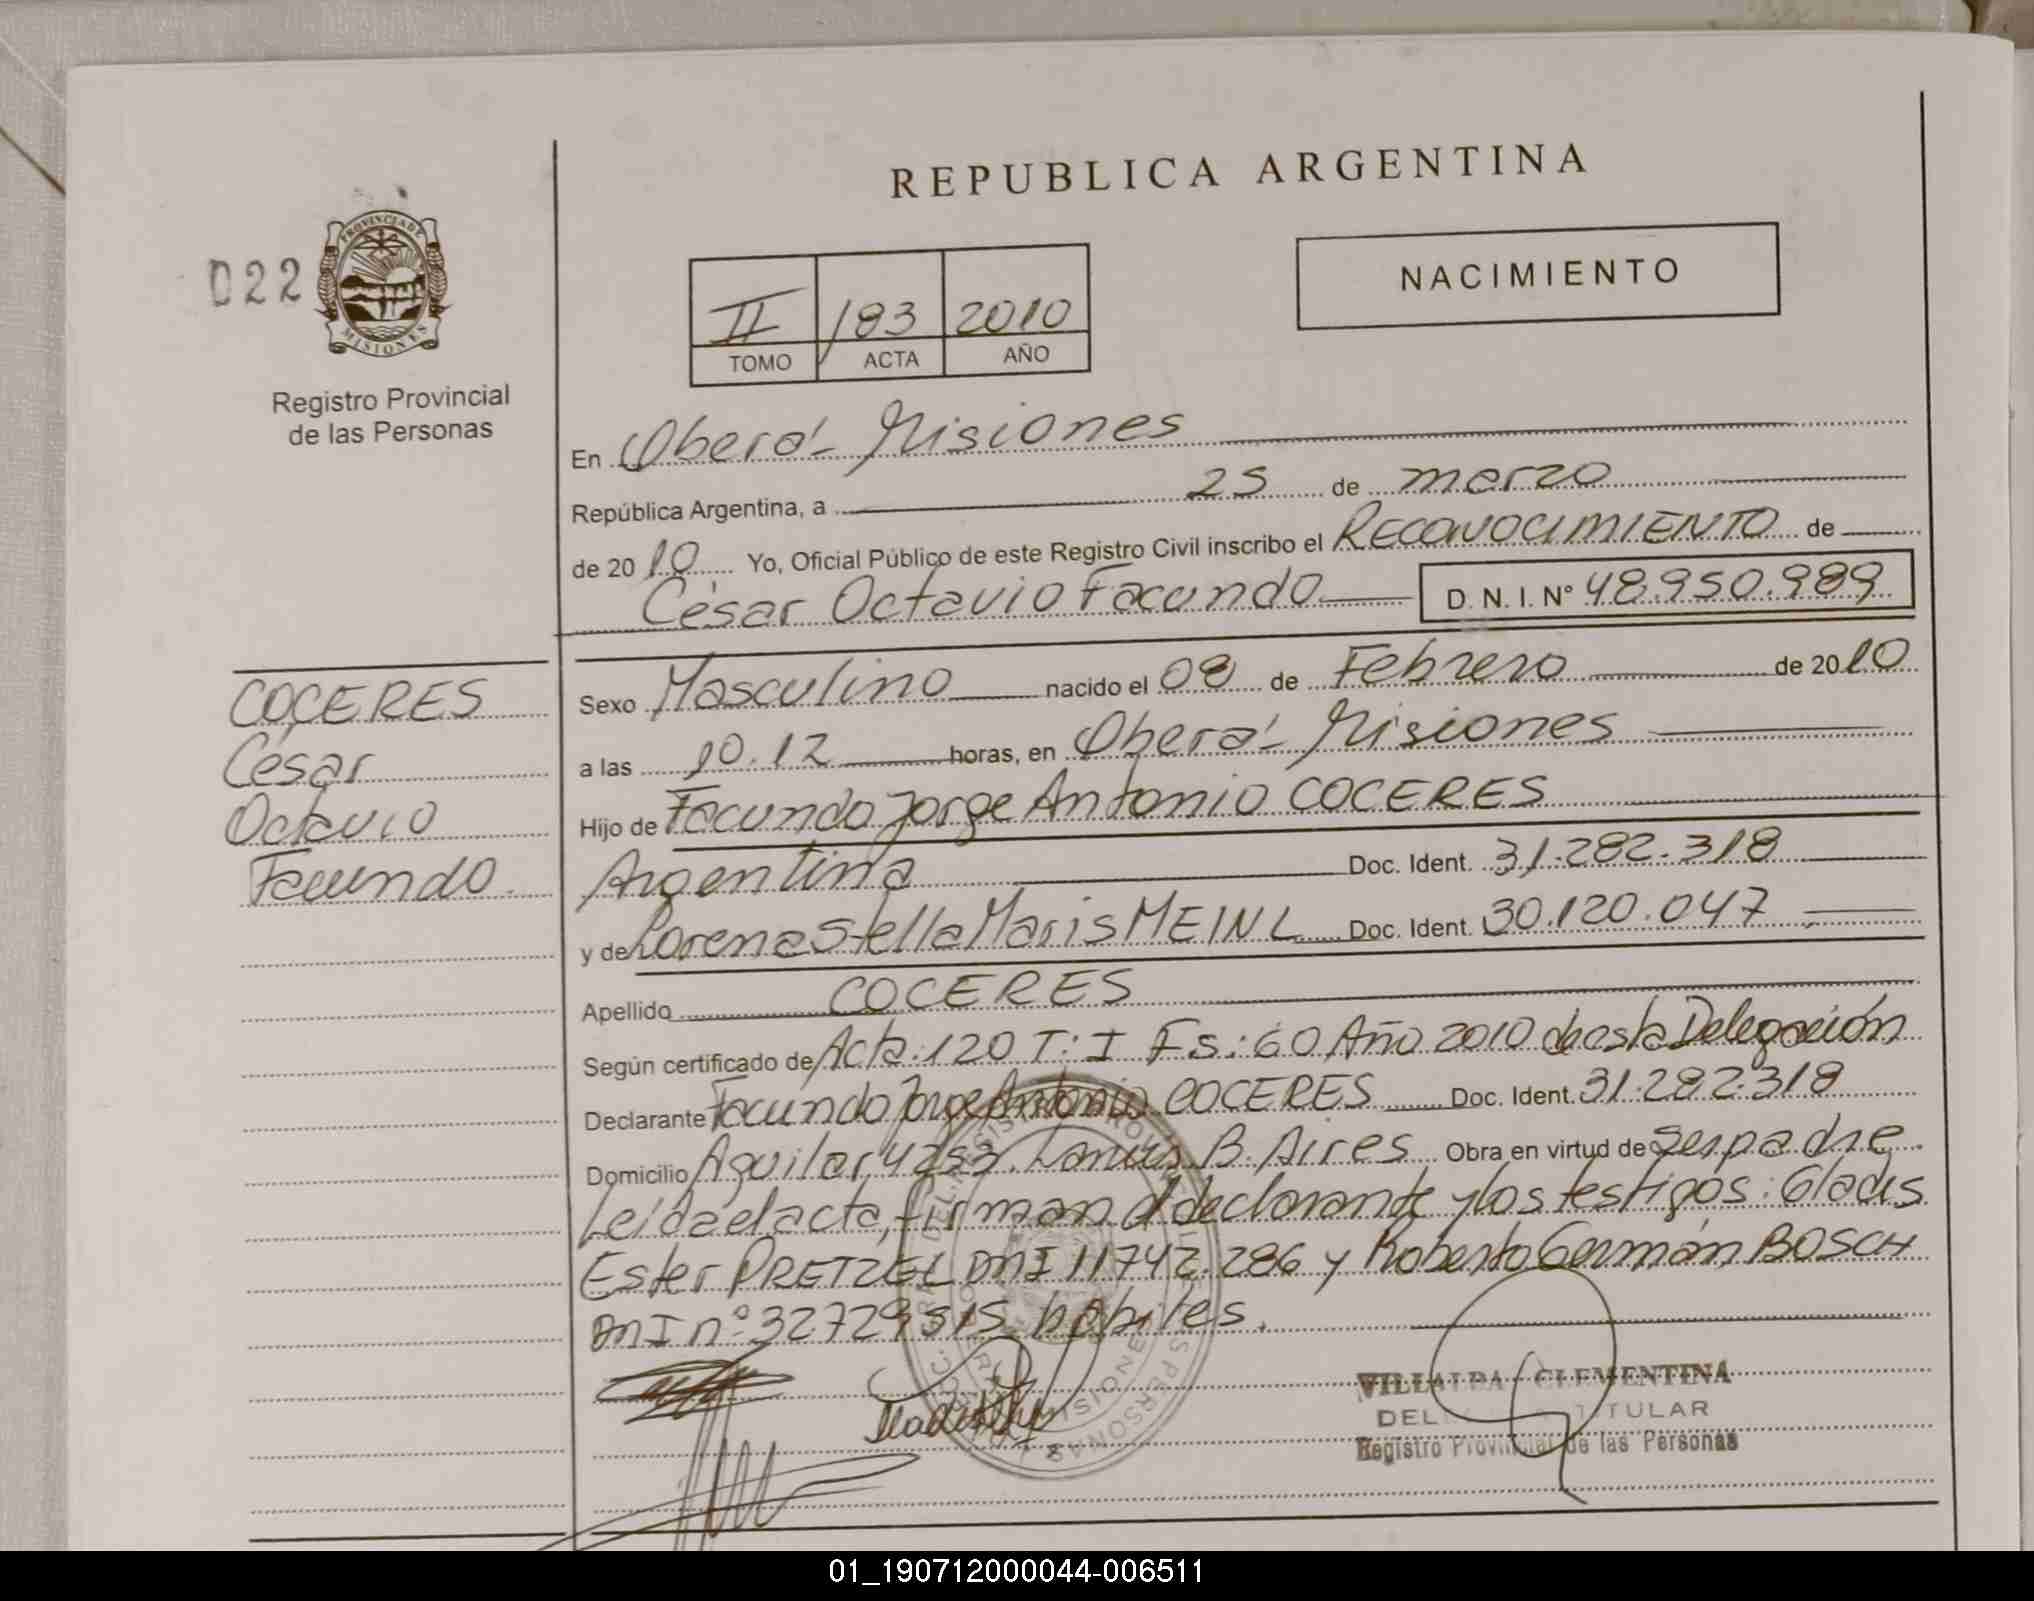 REPUBLICA ARGENTINA
022
PROVINCIA DE
MISIONES
Registro Provincial
de las Personas
NACIMIENTO
II 183 2010
TOMO ACTA AÑO
En Oberá - Misiones
República Argentina, a 25 de marzo
de 2010 Yo, Oficial Público de este Registro Civil inscribo el RECONOCIMIENTO de
César Octavio Facundo D. N. I. N° 48.950.989
COCERES
César
Octavio
Facundo.
Sexo Masculino nacido el 08 de Febrero de 2010
a las 10.12 horas, en Oberá - Misiones
Hijo de Facundo Jorge Antonio COCERES
Argentina Doc. Ident. 31.282.318
y de Lorena Stella Maris MEINL Doc. Ident. 30.120.047
Apellido COCERES
Según certificado de Acta: 120 T: I Fs: 60 Año 2010 de esta Delegación
Declarante Facundo Jorge Antonio COCERES Doc. Ident. 31.282.318
Domicilio Aguilar 4253. Lanús B. Aires Obra en virtud de ser padre.
Leída el acta, firman el declarante y los testigos: Gladis
Ester PRETZEL DNI 11742.286 y Roberto Germán BOSCH
DNI n° 32.729.515 hábiles.
VILLALBA CLEMENTINA
TITULAR
Registro Provincial de las Personas
01_190712000044-006511